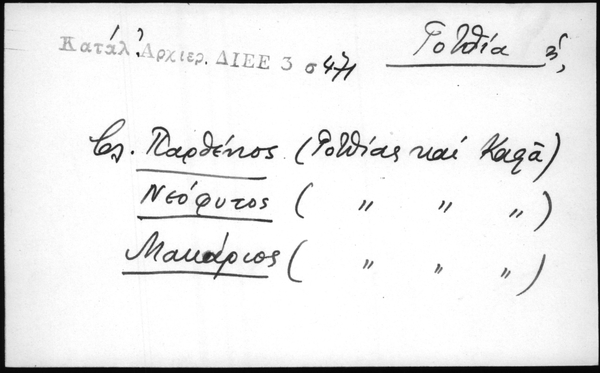 Κατάλ. Ἀρχιερ. ΔΙΕΕ 3 σ 471
Γοτθία
βλ. Παρθένιος (Γοτθίας καί Καφᾶ)
Νεόφυτος ( " " ")
Μακάριος ( " " ")